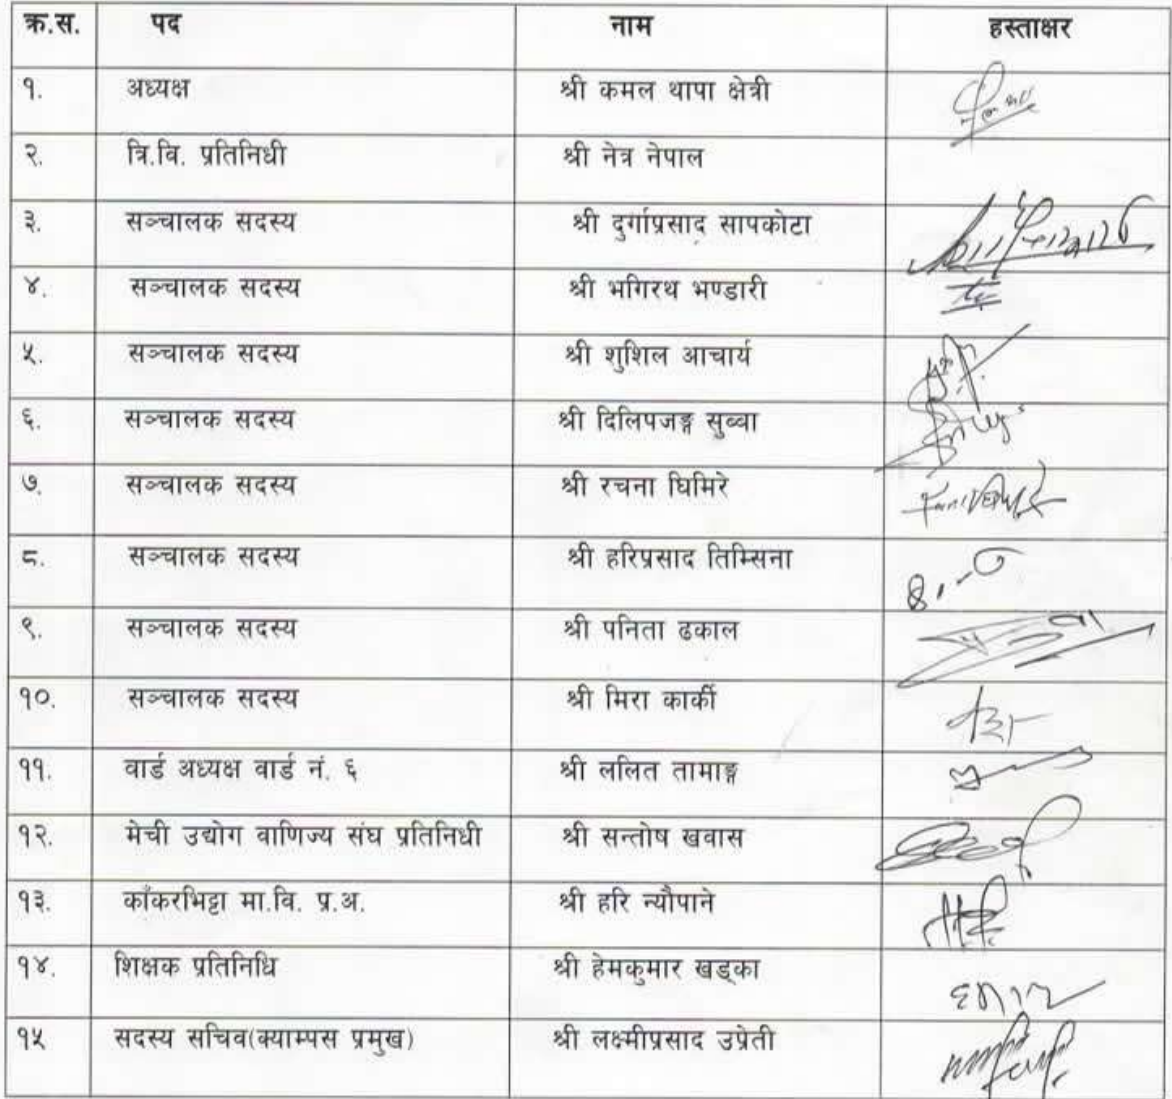 क्र.स. पद नाम हस्ताक्षर
१. अध्यक्ष श्री कमल थापा क्षेत्री
२. त्रि.वि. प्रतिनिधी श्री नेत्र नेपाल
३. सञ्चालक सदस्य श्री दुर्गाप्रसाद सापकोटा
४. सञ्चालक सदस्य श्री भगिरथ भण्डारी
५. सञ्चालक सदस्य श्री शुशिल आचार्य
६. सञ्चालक सदस्य श्री दिलिपजङ्ग सुब्बा
७. सञ्चालक सदस्य श्री रचना घिमिरे
८. सञ्चालक सदस्य श्री हरिप्रसाद तिम्सिना
९. सञ्चालक सदस्य श्री पनिता ढकाल
१०. सञ्चालक सदस्य श्री मिरा कार्की
११. वार्ड अध्यक्ष वार्ड नं. ६ श्री ललित तामाङ्ग
१२. मेची उद्योग वाणिज्य संघ प्रतिनिधी श्री सन्तोष खवास
१३. काँकरभिट्टा मा.वि. प्र.अ. श्री हरि न्यौपाने
१४. शिक्षक प्रतिनिधि श्री हेमकुमार खड्का
१५ सदस्य सचिव(क्याम्पस प्रमुख) श्री लक्ष्मीप्रसाद उप्रेती